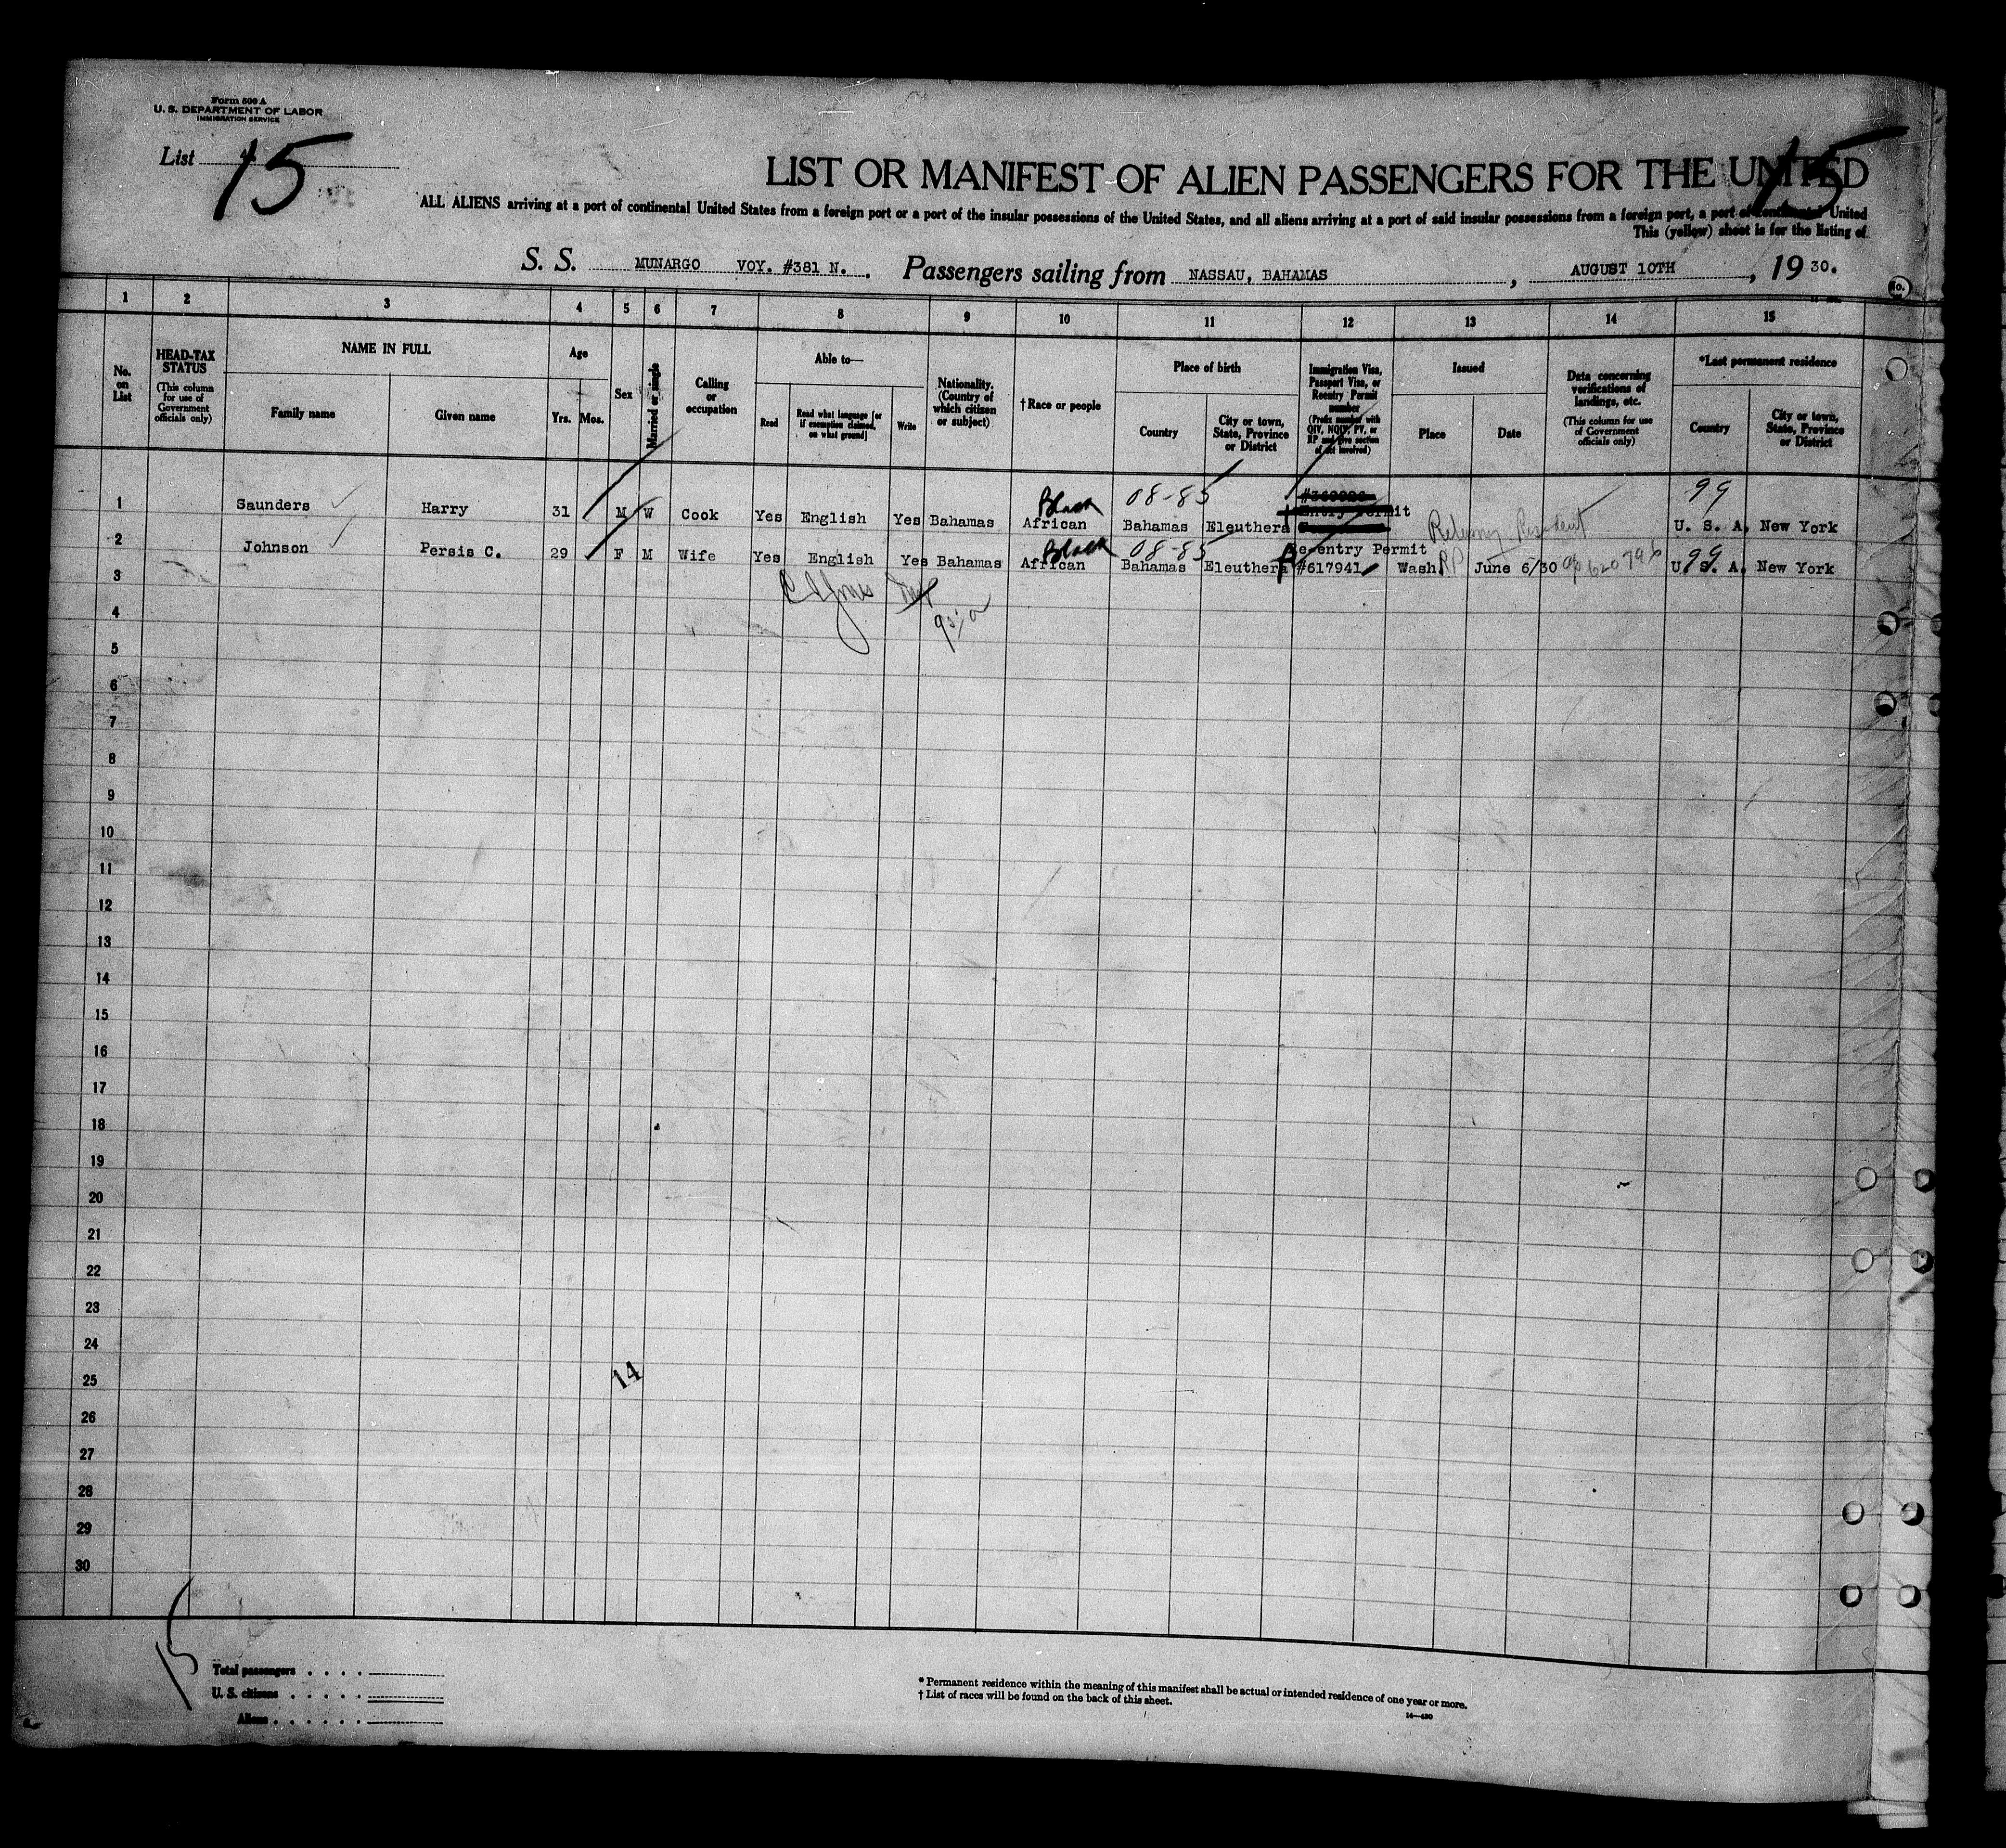 Form 500 A
U. S. DEPARTMENT OF LABOR
IMMIGRATION SERVICE
List 15
15
LIST OR MANIFEST OF ALIEN PASSENGERS FOR THE UNITED
ALL ALIENS arriving at a port of continental United States from a foreign port or a port of the insular possessions of the United States, and all aliens arriving at a port of said insular possessions from a foreign port, a port of continental United
This (yellow) sheet is for the listing of
S. S. MUNARGO VOY. #381 N. Passengers sailing from NASSAU, BAHAMAS, AUGUST 10TH, 19 30.
1 2 3 4 5 6 7 8 9 10 11 12 13 14 15
No. on List
HEAD-TAX STATUS
(This column for use of Government officials only)
NAME IN FULL
Family name
Given name
Age
Yrs. Mos.
Sex
Married or single
Calling or occupation
Able to—
Read
Read what language [or if exemption claimed, on what ground]
Write
Nationality. (Country of which citizen or subject)
†Race or people
Place of birth
Country
City or town, State, Province or District
Immigration Visa, Passport Visa, or Reentry Permit number
(Prefix number with QIV, NQIV, PV, or RP and give section of act involved)
Issued
Place
Date
Data concerning verifications of landings, etc.
(This column for use of Government officials only)
*Last permanent residence
Country
City or town, State, Province or District
08-85 99
1 Saunders Harry 31 M W Cook Yes English Yes Bahamas Black African Bahamas Eleuthera Entry Permit Returning Resident U. S. A. New York
2 Johnson Persis C. 29 F M Wife Yes English Yes Bahamas Black African 08-85 Bahamas Eleuthera Re-entry Permit #617941 Wash. RP June 6/30 620796 99 U. S. A. New York
3
4
5
6
7
8
9
10
11
12
13
14
15
16
17
18
19
20
21
22
23
24
14
25
26
27
28
29
30
15
Total passengers
U. S. citizens
Aliens
* Permanent residence within the meaning of this manifest shall be actual or intended residence of one year or more.
† List of races will be found on the back of this sheet.
14—430